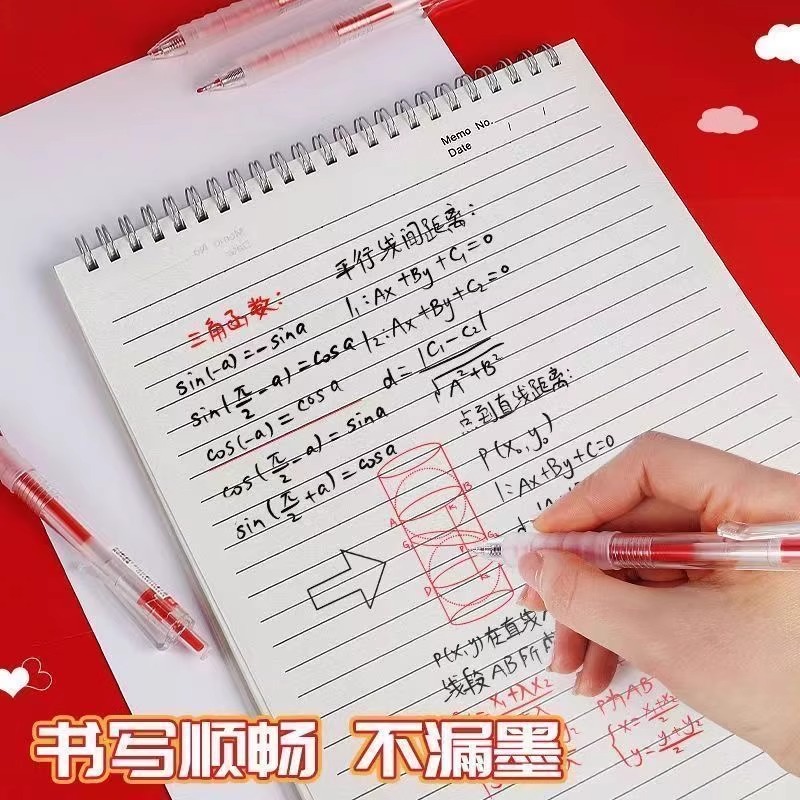 Memo No.
Date / /
平行线间距离:
l₁: Ax+By+C₁=0
l₂: Ax+By+C₂=0
d=|C₁-C₂|/√A²+B²
三角函数:
sin(-a)=-sina
sin(π/2-a)=cosa
cos(-a)=cosa
cos(π/2-a)=sina
sin(π/2+a)=cosa
点到直线距离:
P(x₀,y₀)
l: Ax+By+C=0
A
B
K
G
G₂
D
K
P(x,y)在直线
线段AB所
x₁+λx₂
P为AB
x=x₁+x₂/2
y=y₁+y₂/2
书写顺畅 不漏墨